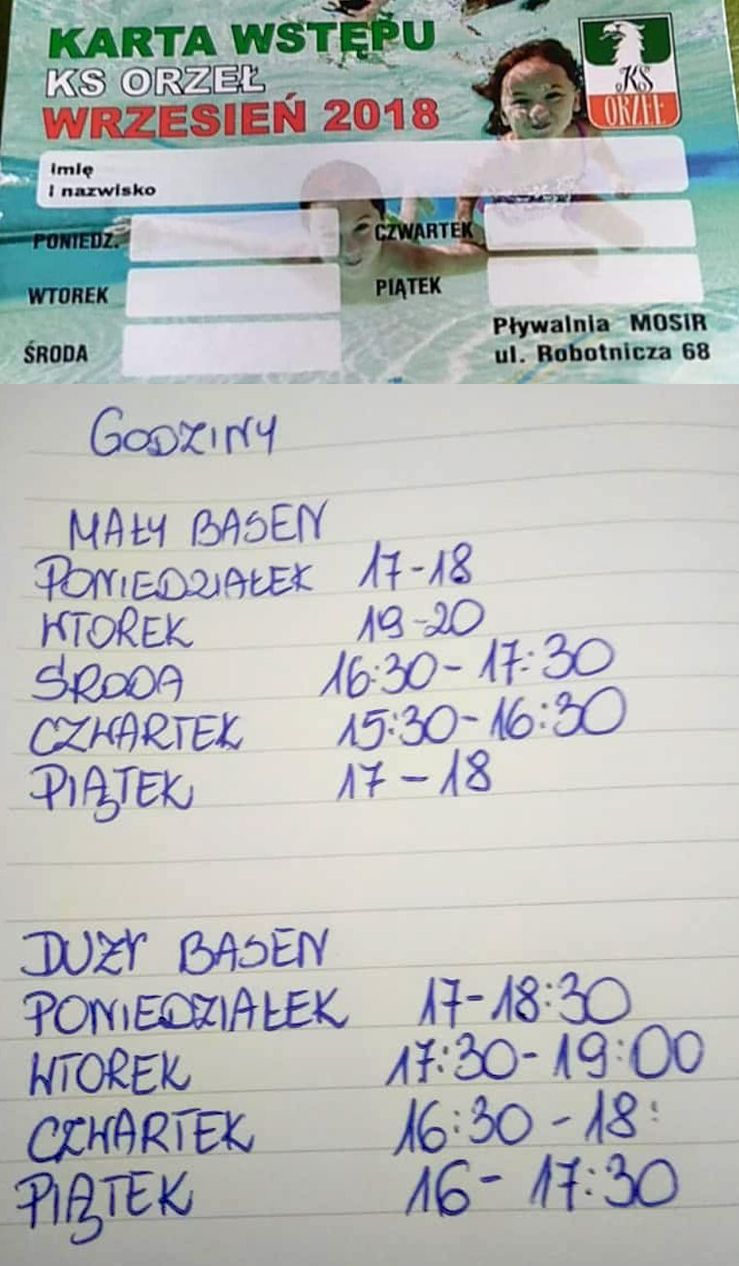 KARTA WSTĘPU
KS ORZEŁ
WRZESIEŃ 2018
KS
ORZEŁ
imię
i nazwisko
PONIEDZ.
CZWARTEK
WTOREK
PIĄTEK
ŚRODA
Pływalnia MOSiR
ul. Robotnicza 68
GODZINY
MAŁY BASEN
PONIEDZIAŁEK 17-18
WTOREK 19-20
ŚRODA 16:30-17:30
CZWARTEK 15:30-16:30
PIĄTEK 17-18
DUZY BASEN
PONIEDZIAŁEK 17-18:30
WTOREK 17:30-19:00
CZWARTEK 16:30-18:
PIĄTEK 16-17:30